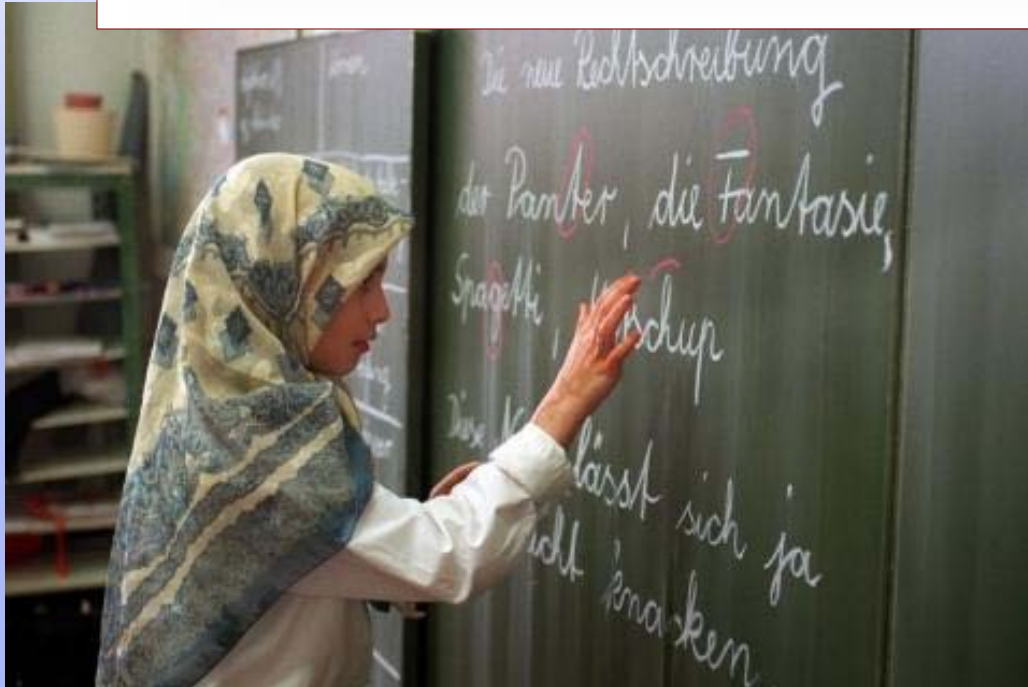 Die neue Rechtschreibung
der Panter, die Fantasie,
Spagetti, Ketschup
Diese lässt sich ja
nicht knacken